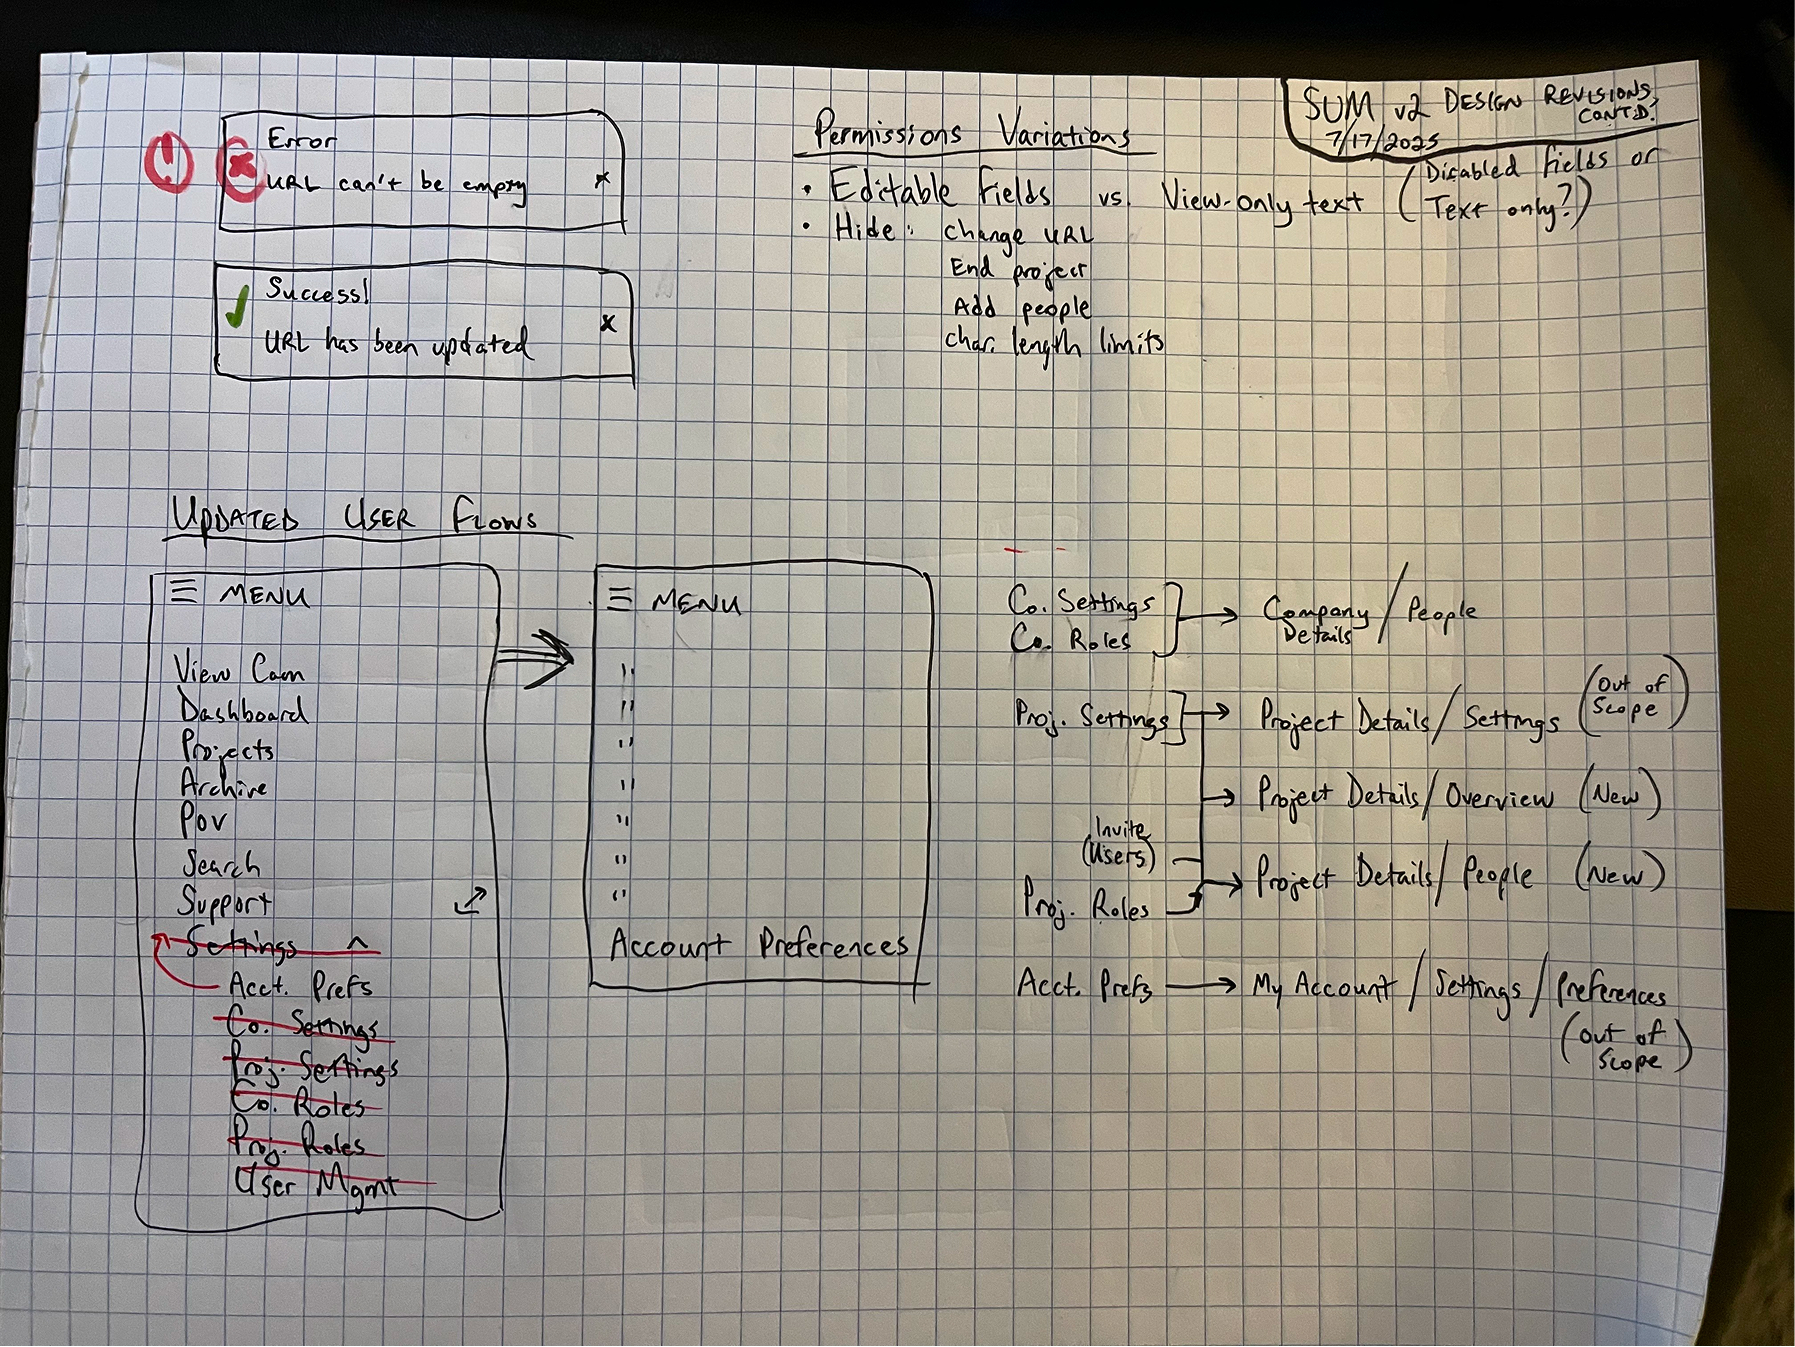 SUM v2 DESIGN REVISIONS,
CONT'D.
7/17/2025
!
x Error
URL can't be empty x
Success!
URL has been updated x
Permissions Variations
• Editable fields vs. View-only text (Disabled fields or
Text only?)
• Hide: change URL
End project
Add people
char. length limits
UPDATED USER FLOWS
☰ MENU
View Cam
Dashboard
Projects
Archive
Pov
Search
Support
Settings ^
Acct. Prefs
Co. Settings
Proj. Settings
Co. Roles
Proj. Roles
User Mgmt
☰ MENU
"
"
"
"
"
"
"
Account Preferences
Co. Settings
Co. Roles
Company / People
Details
Proj. Settings
Project Details / Settings (Out of
Scope)
Project Details / Overview (New)
Invite
(Users)
Project Details / People (New)
Proj. Roles
Acct. Prefs → My Account / Settings / Preferences
(out of
Scope)